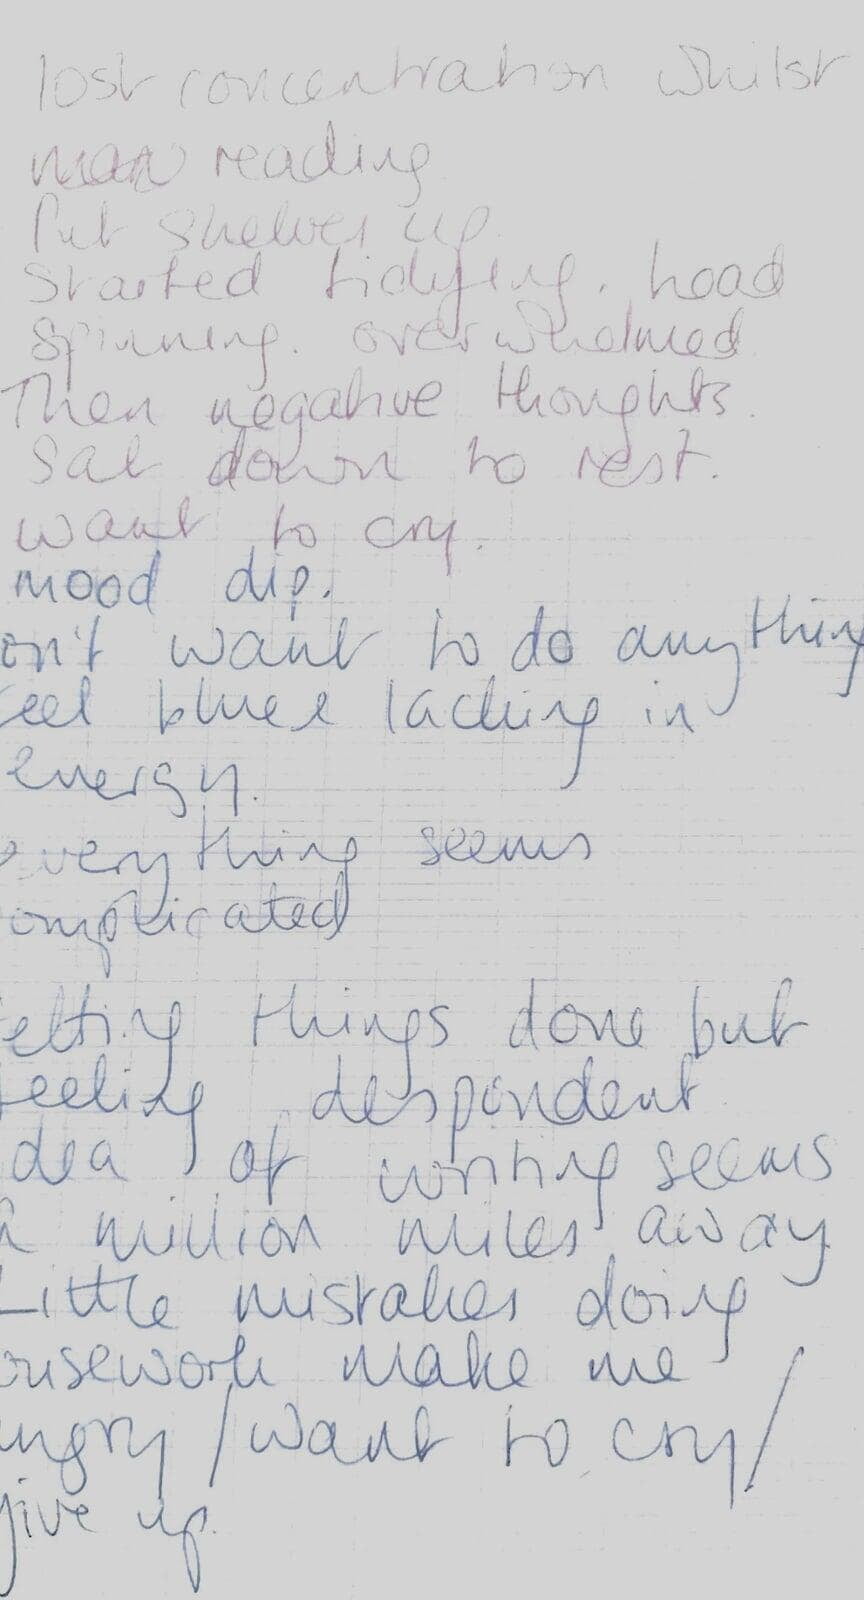 lost concentration whilst
reading
Put shelves up.
Started tidying. head
spinning. overwhelmed
Then negative thoughts.
Sat down to rest.
want to cry.
mood dip.
on't want to do anything
eel blue lacking in
energy.
everything seems
omplicated
etting things done but
feeling despondent
dea of writing seems
a million miles away
Little mistakes doing
ousework make me
ngry / want to cry /
give up.